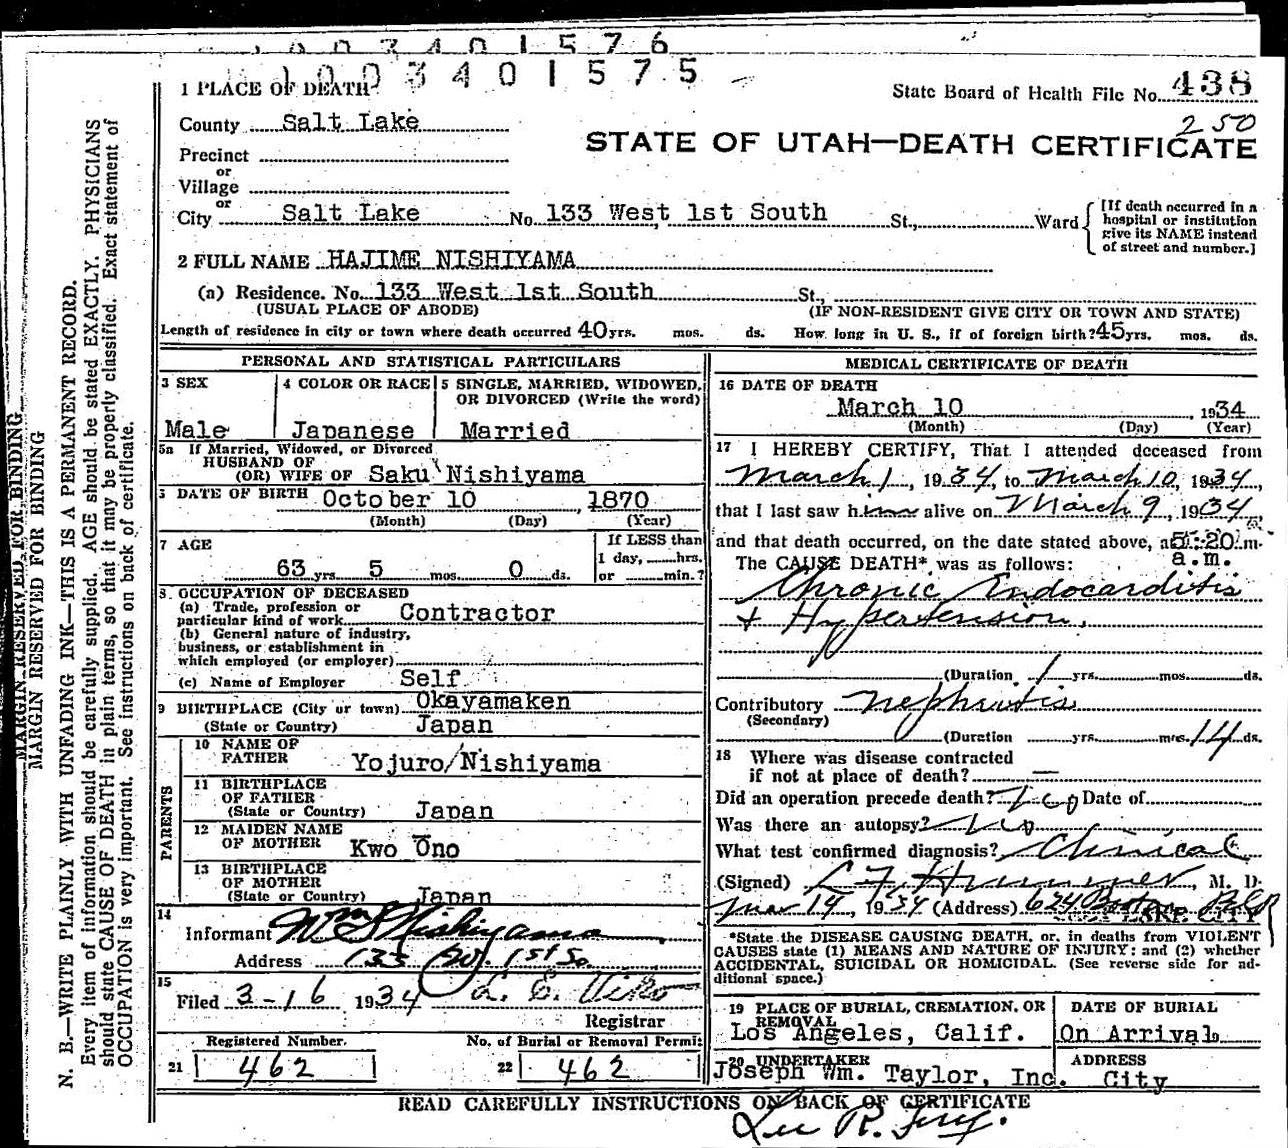 1003401576
1003401575
1 PLACE OF DEATH
State Board of Health File No. 438
250
County Salt Lake
STATE OF UTAH—DEATH CERTIFICATE
Precinct
or
Village
or
City Salt Lake No. 133 West 1st South St., Ward
[If death occurred in a hospital or institution give its NAME instead of street and number.]
2 FULL NAME HAJIME NISHIYAMA
(a) Residence. No. 133 West 1st South St.,
(USUAL PLACE OF ABODE) (IF NON-RESIDENT GIVE CITY OR TOWN AND STATE)
Length of residence in city or town where death occurred 40 yrs. mos. ds. How long in U. S., if of foreign birth? 45 yrs. mos. ds.
PERSONAL AND STATISTICAL PARTICULARS
3 SEX
Male
4 COLOR OR RACE
Japanese
5 SINGLE, MARRIED, WIDOWED,
OR DIVORCED (Write the word)
Married
5a If Married, Widowed, or Divorced
HUSBAND OF
(OR) WIFE OF Saku Nishiyama
DATE OF BIRTH October 10, 1870
(Month) (Day) (Year)
7 AGE
63 yrs. 5 mos. 0 ds.
If LESS than
1 day, hrs.
or min.?
8. OCCUPATION OF DECEASED
(a) Trade, profession or
particular kind of work Contractor
(b) General nature of industry,
business, or establishment in
which employed (or employer)
(c) Name of Employer Self
9 BIRTHPLACE (City or town) Okayamaken
(State or Country) Japan
PARENTS
10 NAME OF
FATHER Yojuro/Nishiyama
11 BIRTHPLACE
OF FATHER
(State or Country) Japan
12 MAIDEN NAME
OF MOTHER Kwo Ono
13 BIRTHPLACE
OF MOTHER
(State or Country) Japan
14
Informant Wm S Nishiyama
Address 133 W. 1st So
15
Filed 3-16 1934
Registrar
Registered Number.
21 462
No. of Burial or Removal Permit
22 462
MEDICAL CERTIFICATE OF DEATH
16 DATE OF DEATH
March 10, 1934
(Month) (Day) (Year)
17 I HEREBY CERTIFY, That I attended deceased from
March 1, 1934, to March 10, 1934,
that I last saw him alive on March 9, 1934
and that death occurred, on the date stated above, at 5:20 m.
a.m.
The CAUSE DEATH* was as follows:
Chronic Endocarditis
+ Hypertension.
(Duration 1 yrs. mos. ds.
Contributory Nephritis
(Secondary)
(Duration yrs. mos. 14 ds.
18 Where was disease contracted
if not at place of death? —
Did an operation precede death? No Date of
Was there an autopsy? No
What test confirmed diagnosis? Clinical
(Signed) L. F. Hummer, M. D.
Mar 14, 1934 (Address) 624 Boston Bldg
LAKE CITY
*State the DISEASE CAUSING DEATH, or, in deaths from VIOLENT
CAUSES state (1) MEANS AND NATURE OF INJURY; and (2) whether
ACCIDENTAL, SUICIDAL OR HOMICIDAL. (See reverse side for ad-
ditional space.)
19 PLACE OF BURIAL, CREMATION, OR
REMOVAL
Los Angeles, Calif.
DATE OF BURIAL
On Arrival
20 UNDERTAKER
Joseph Wm. Taylor, Inc.
ADDRESS
City
READ CAREFULLY INSTRUCTIONS ON BACK OF CERTIFICATE
MARGIN RESERVED FOR BINDING
MARGIN RESERVED FOR BINDING
N. B.—WRITE PLAINLY WITH UNFADING INK—THIS IS A PERMANENT RECORD.
Every item of information should be carefully supplied. AGE should be stated EXACTLY. PHYSICIANS
should state CAUSE OF DEATH in plain terms, so that it may be properly classified. Exact statement of
OCCUPATION is very important. See instructions on back of certificate.